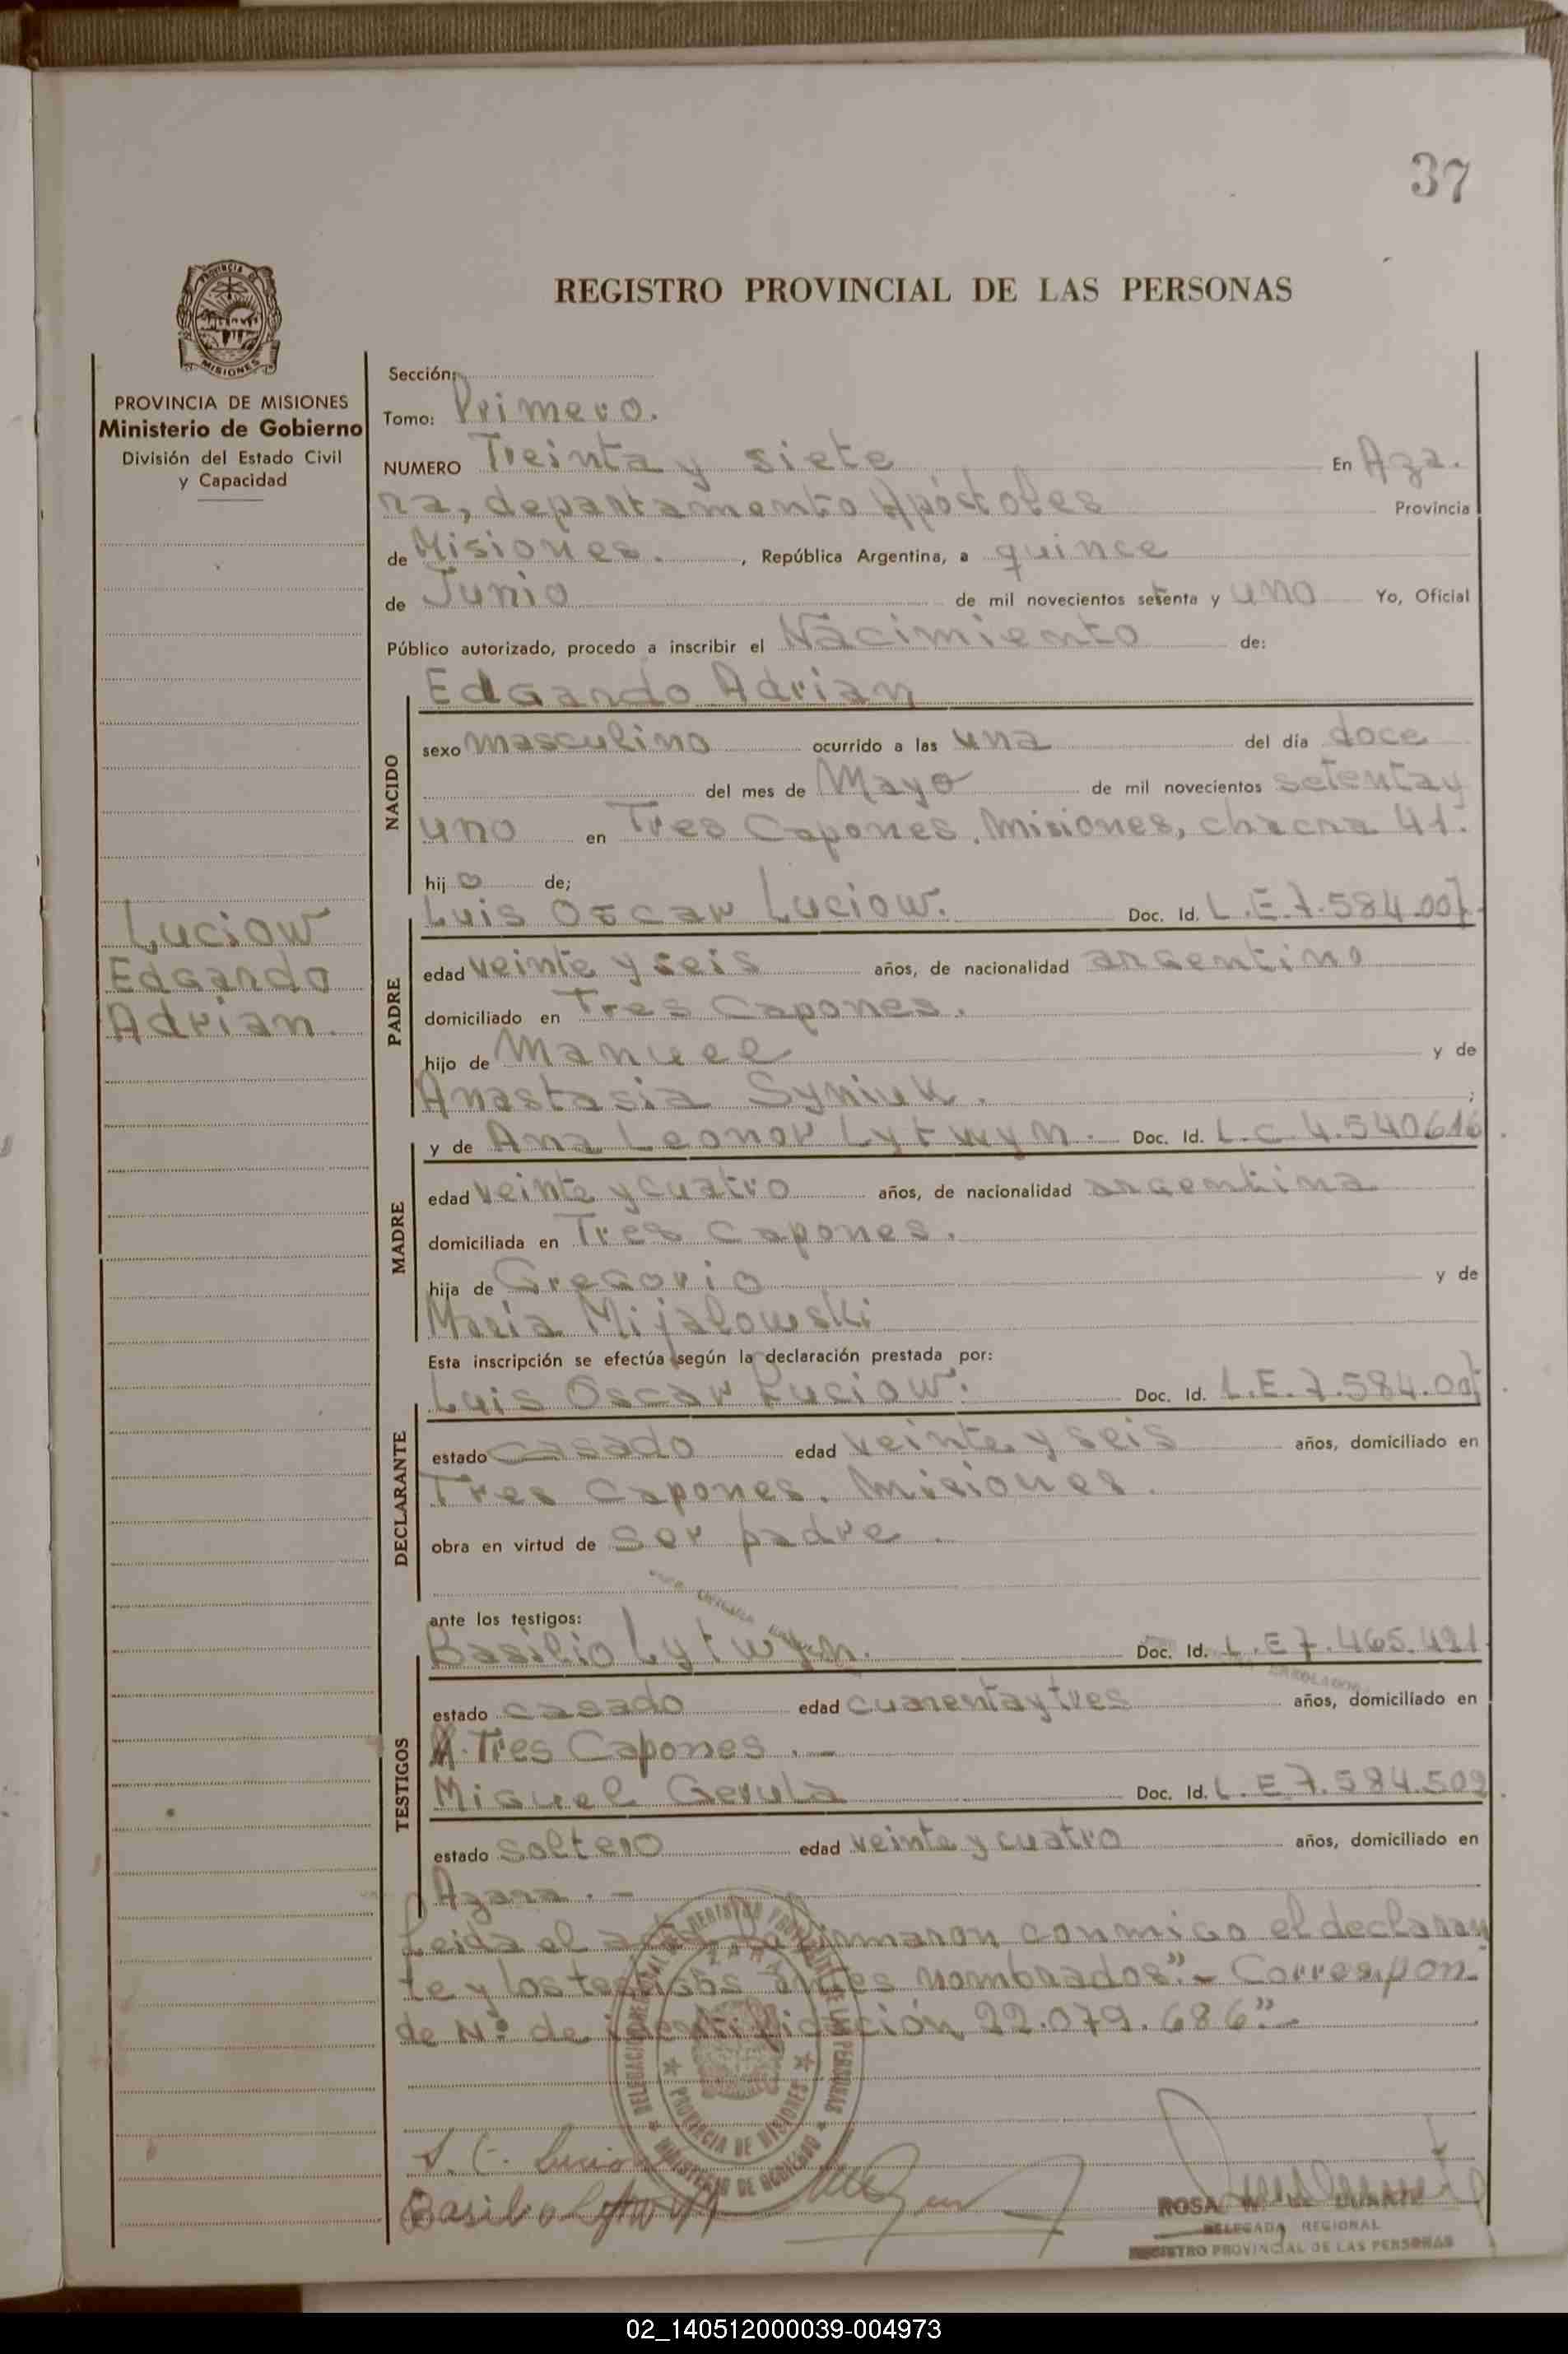 37
REGISTRO PROVINCIAL DE LAS PERSONAS
PROVINCIA DE MISIONES
PROVINCIA DE MISIONES
Ministerio de Gobierno
División del Estado Civil
y Capacidad
Luciow
Edgardo
Adrian.
Sección:
Tomo: Primero.
NUMERO Treinta y siete En Aza.
ra, departamento Apóstoles Provincia
de Misiones. , República Argentina, a quince
de Junio de mil novecientos setenta y uno Yo, Oficial
Público autorizado, procedo a inscribir el Nacimiento de:
Edgardo Adrian
NACIDO
sexo masculino ocurrido a las una del día doce
del mes de Mayo de mil novecientos setenta y
uno en Tres Capones. Misiones, chacra 41.
hij o de;
PADRE
Luis Oscar Luciow. Doc. Id. L.E.7.584.007.
edad veinte y seis años, de nacionalidad argentino
domiciliado en Tres Capones.
hijo de Manuel y de
Anastasia Syniuk. ;
MADRE
y de Ana Leonor Lytwyn. Doc. Id. L.C. 4.540616
edad veinte y cuatro años, de nacionalidad argentina
domiciliada en Tres Capones.
hija de Gregorio y de
Maria Mijalowski
Esta inscripción se efectúa según la declaración prestada por:
DECLARANTE
Luis Oscar Luciow. Doc. Id. L.E.7.584.007
estado casado edad veinte y seis años, domiciliado en
Tres Capones. Misiones.
obra en virtud de ser padre.
ante los testigos:
TESTIGOS
Basilio Lytwyn. Doc. Id. L.E 7.465.491
estado casado edad cuarenta y tres años, domiciliado en
Tres Capones.—
Miguel Gerula Doc. Id. L.E 7.584.509
estado soltero edad veinte y cuatro años, domiciliado en
Azara.—
Leida el acta firmaron conmigo el declaran
te y los testigos antes nombrados".- Correspon
de Nº de identificación 22.079.686".-
DELEGACION REGIONAL REGISTRO PROVINCIAL DE LAS PERSONAS
PROVINCIA DE MISIONES
MINISTERIO DE GOBIERNO
L. C. Luciow
Basilio Lytwyn
ROSA DE DUARTE
DELEGADA REGIONAL
REGISTRO PROVINCIAL DE LAS PERSONAS
02_140512000039-004973